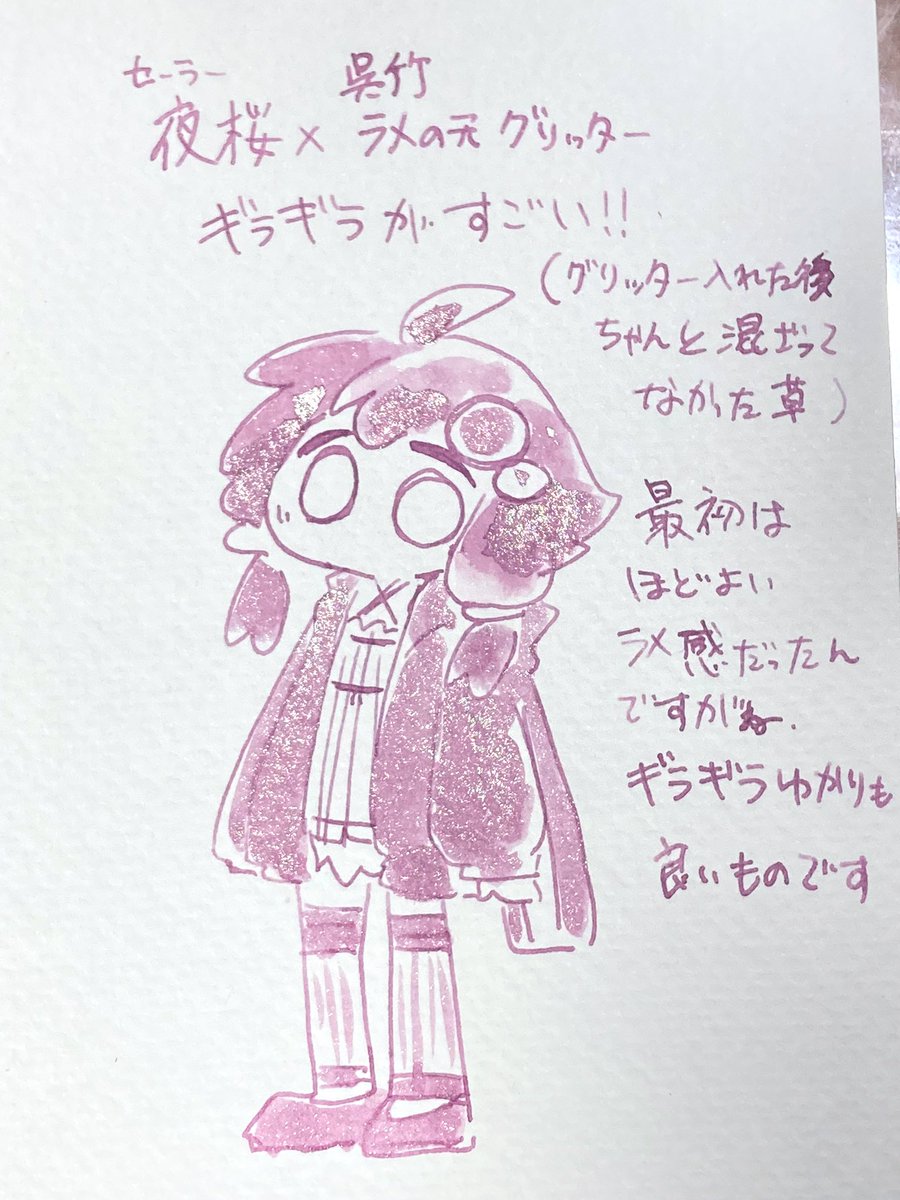 セーラー 呉竹
夜桜×ラメの元グリッター
ギラギラがすごい!!
(グリッター入れた後
ちゃんと混ざって
なかった草)
最初は
ほどよい
ラメ感だったん
ですがね.
ギラギラゆかりも
良いものです